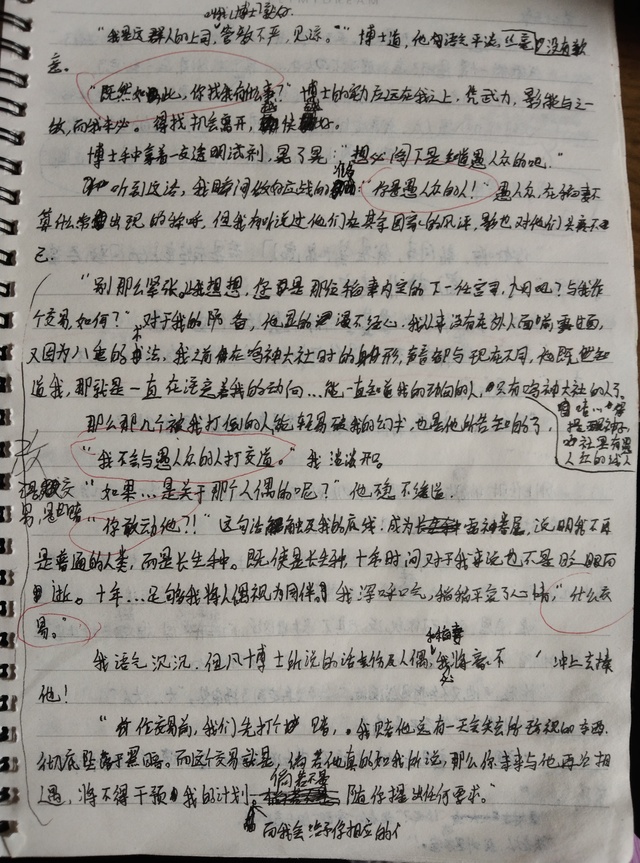 "我是这群人的上司，管教不严，见谅。"博士道，他句语气平淡，丝毫没有歉
意。
"既然如此，你找我有何事？"博士的实力应远在我之上，凭武力，影能与之一
战，而我未必。得找机会离开，
博士手中拿着一支透明试剂，晃了晃："想必阁下是知道愚人众的吧。"
听到这话，我瞬间做好应战的准备："你是愚人众的人！"愚人众，在稻妻不
算什么常出现的称呼，但我有听说过他们在其余国家的风评，影也对他们头疼不
已。
"别那么紧张。让我想想，您是那位稻妻内定的下一任宫司，九月吧？与我作
个交易如何？"对于我的防备，他显的漫不经心，我从来没有在外人面前露过面，
又因为八重的术法，我之前在鸣神大社时的身形，声音都与现在不同，他既然知
道我，那就是一直在注意着我的动向...能一直知道我的动向的人，只有鸣神大社的人了。
那么那几个被我打倒的人能轻易破我的幻术，也是他所告知的了，
"我不会与愚人众的人打交道。"我淡淡开口。
"如果...是关于那个人偶的呢？"他毫不缓道
"你敢动他？！"这句话触及我的底线。成为雷神眷属，说明我不再
是普通的人类，而是长生种。既使是长生种，十年时间对于我来说也不是眨眼而
逝。十年...足够我将人偶视为同伴。我深呼吸，稍稍平复了心情，"什么交
易。"
我语气沉沉，但凡博士所说的话伤及人偶和稻妻，我将毫不 冲上去揍
他！
"作交易前，我们先打个赌，我赌他总有一天会失去所珍视的东西，
彻底坠于黑暗。而这个交易就是，倘若他真的如我所说，那么你未来与他再次相
遇，将不得干预我的计划 倘若不是 随你提出任何要求。"
而我会给予你相应的